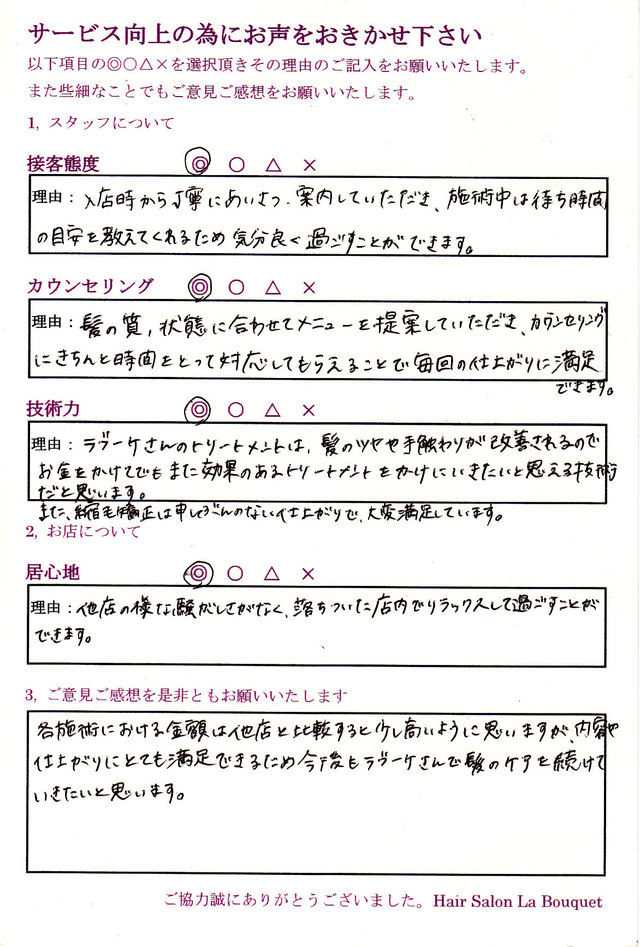 サービス向上の為にお声をおきかせ下さい
以下項目の◎○△×を選択頂きその理由のご記入をお願いいたします。
また些細なことでもご意見ご感想をお願いいたします。
1, スタッフについて
接客態度 ◎ ○ △ ×
理由：入店時から丁寧にあいさつ、案内していただき、施術中は待ち時間
の目安を教えてくれるため気分良く過ごすことができます。
カウンセリング ◎ ○ △ ×
理由：髪の質、状態に合わせてメニューを提案していただき、カウンセリング
にきちんと時間をとって対応してもらえることで毎回の仕上がりに満足
できます。
技術力 ◎ ○ △ ×
理由：ラブーケさんのトリートメントは、髪のツヤや手触わりが改善されるので
お金をかけてでもまた効果のあるトリートメントをかけにいきたいと思える技術
だと思います。
また、縮毛矯正は申しぶんのない仕上がりで、大変満足しています。
2, お店について
居心地 ◎ ○ △ ×
理由：他店の様な騒がしさがなく、落ちついた店内でリラックスして過ごすことが
できます。
3, ご意見ご感想を是非ともお願いいたします
各施術における金額は他店と比較すると少し高いように思いますが、内容や
仕上がりにとても満足できるため今後もラブーケさんで髪のケアを続けて
いきたいと思います。
ご協力誠にありがとうございました。Hair Salon La Bouquet